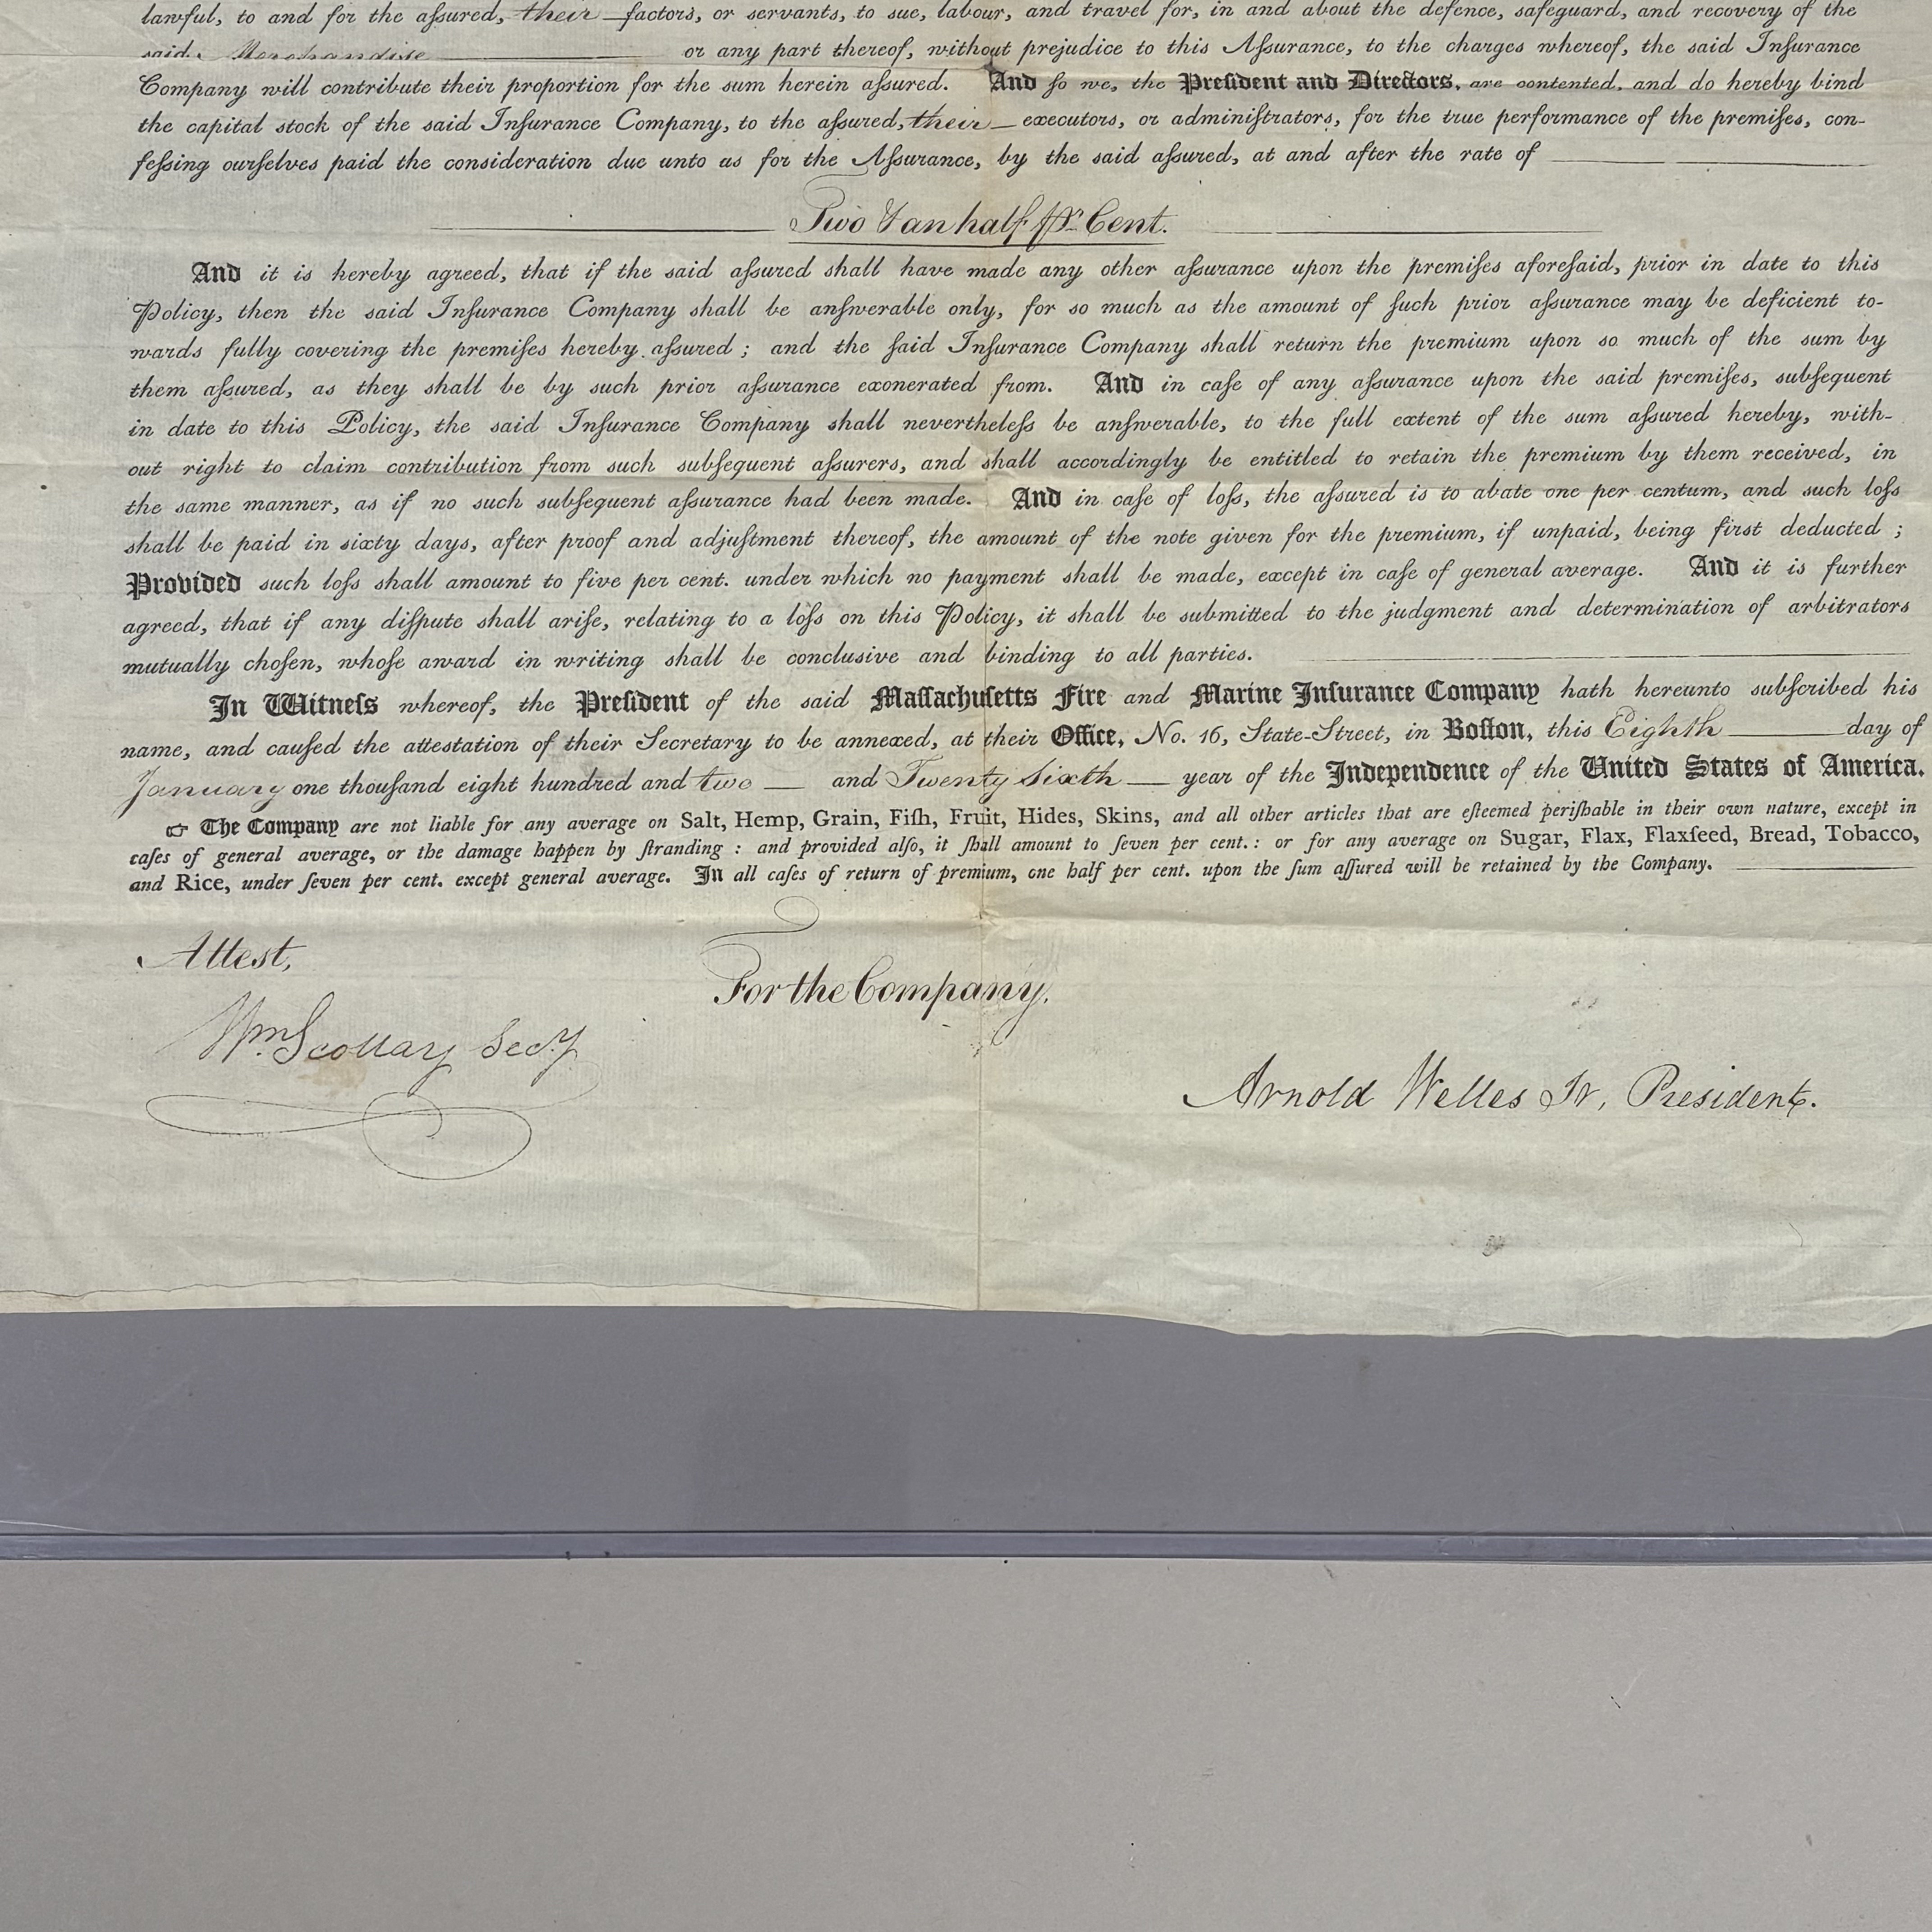 lawful, to and for the aſsured, their factors, or servants, to sue, labour, and travel for, in and about the defence, safeguard, and recovery of the
said Merchandise or any part thereof, without prejudice to this Aſsurance, to the charges whereof, the said Inſurance
Company will contribute their proportion for the sum herein aſsured. And ſo we, the Preſident and Directors, are contented, and do hereby bind
the capital stock of the said Inſurance Company, to the aſsured, their executors, or adminiſtrators, for the true performance of the premiſes, con-
feſsing ourſelves paid the consideration due unto us for the Aſsurance, by the said aſsured, at and after the rate of
Two & an half pr Cent.
And it is hereby agreed, that if the said aſsured shall have made any other aſsurance upon the premiſes aforeſaid, prior in date to this
Policy, then the said Inſurance Company shall be anſwerable only, for so much as the amount of ſuch prior aſsurance may be deficient to-
wards fully covering the premiſes hereby aſsured ; and the ſaid Inſurance Company shall return the premium upon so much of the sum by
them aſsured, as they shall be by such prior aſsurance exonerated from. And in caſe of any aſsurance upon the said premiſes, subſequent
in date to this Policy, the said Inſurance Company shall nevertheleſs be anſwerable, to the full extent of the sum aſsured hereby, with-
out right to claim contribution from such subſequent aſsurers, and shall accordingly be entitled to retain the premium by them received, in
the same manner, as if no such subſequent aſsurance had been made. And in caſe of loſs, the aſsured is to abate one per centum, and such loſs
shall be paid in sixty days, after proof and adjuſtment thereof, the amount of the note given for the premium, if unpaid, being first deducted ;
Provided such loſs shall amount to five per cent. under which no payment shall be made, except in caſe of general average. And it is further
agreed, that if any diſpute shall ariſe, relating to a loſs on this Policy, it shall be submitted to the judgment and determination of arbitrators
mutually choſen, whoſe award in writing shall be conclusive and binding to all parties.
In Witneſs whereof, the Preſident of the said Maſſachuſetts Fire and Marine Inſurance Company hath hereunto subſcribed his
name, and cauſed the attestation of their Secretary to be annexed, at their Office, No. 16, State-Street, in Boſton, this Eighth day of
January one thouſand eight hundred and two and Twenty sixth year of the Independence of the United States of America.
☞ The Company are not liable for any average on Salt, Hemp, Grain, Fiſh, Fruit, Hides, Skins, and all other articles that are eſteemed periſhable in their own nature, except in
caſes of general average, or the damage happen by ſtranding : and provided alſo, it ſhall amount to ſeven per cent. : or for any average on Sugar, Flax, Flaxſeed, Bread, Tobacco,
and Rice, under ſeven per cent. except general average. In all caſes of return of premium, one half per cent. upon the ſum aſſured will be retained by the Company.
Attest,
For the Company,
Wm Scollay Secy
Arnold Welles Jr, President.